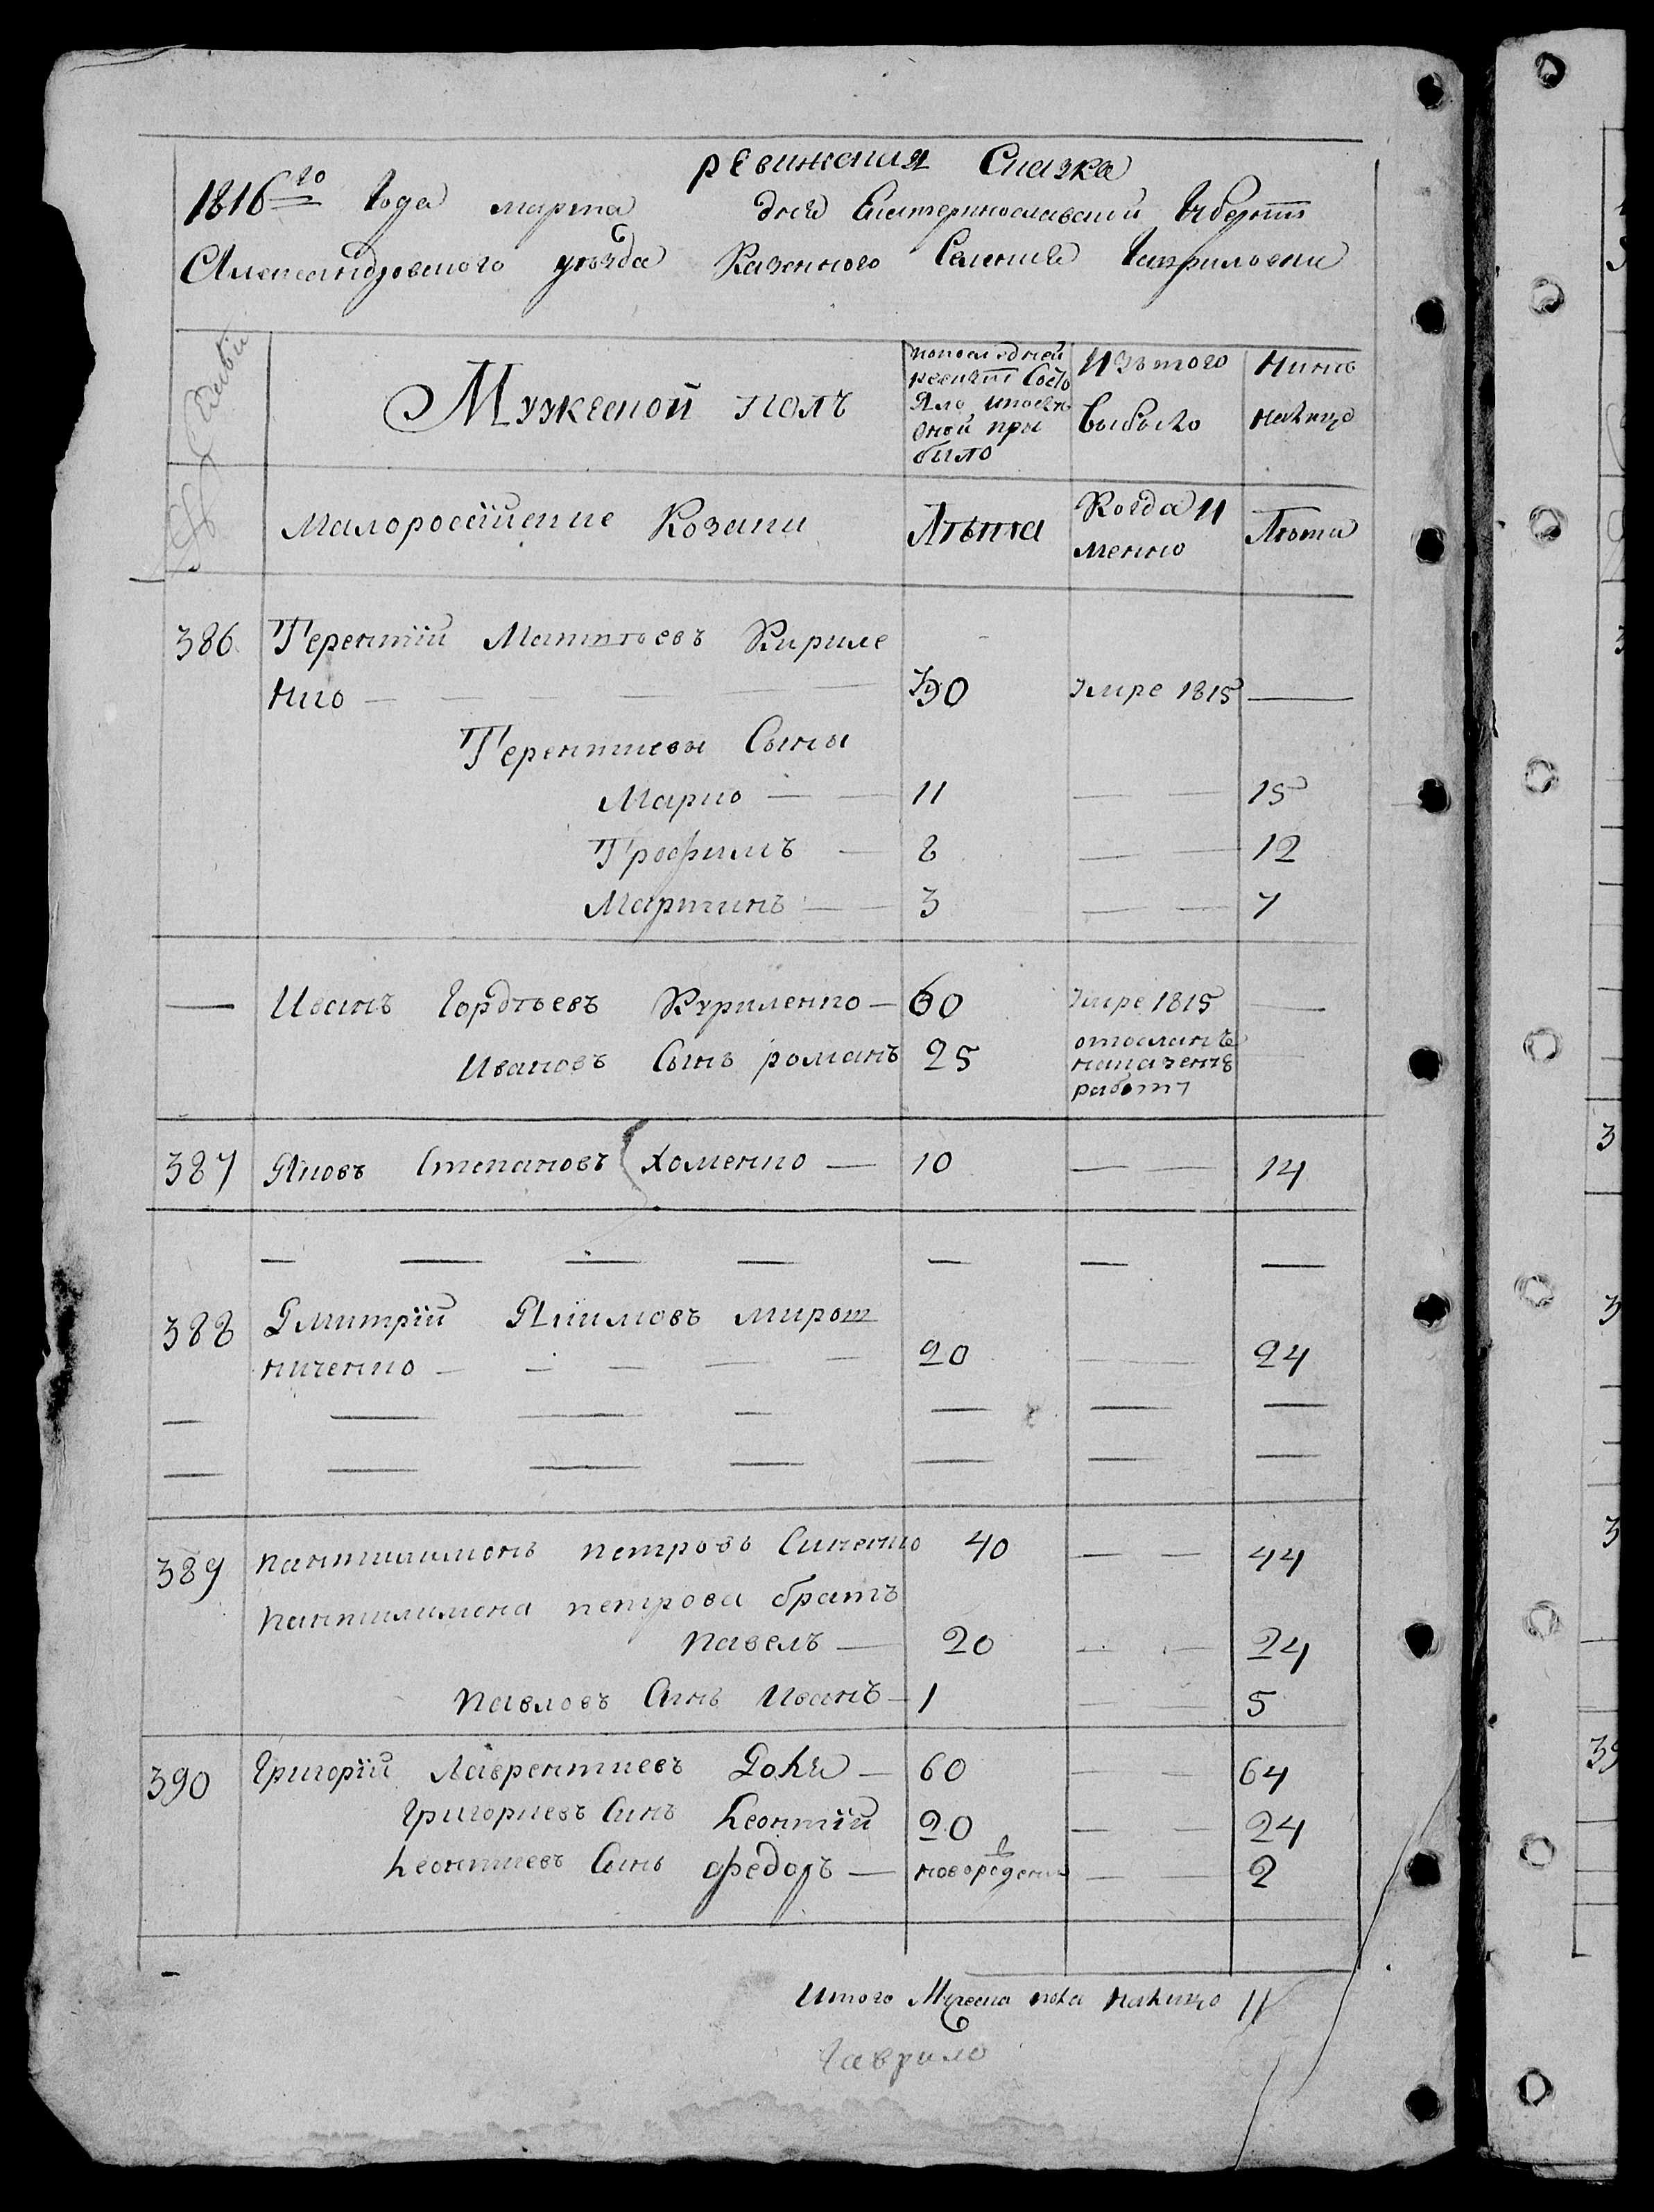 ревижская Сказка
1816го Года марта дня Екатеринославской Губернїи
Александровского уезда Казенного Селения Гавриловки
№ Семьи
Мужеской полъ
попоследней ревизїи Состояло ипослѣ оной прибыло
Изътого выбыло
Нинѣ налицо
Малоросcїйские Козаки
Лѣта
Когда Именно
Лѣта
386 Терентїй Матвѣевъ Кириле
нко — — — — 30 Умре 1815 —
Терентиевы Сыны
Марко — — 11 — — 15
Трофимъ — 8 — — 12
Мартинъ — — 3 — — 7
— Иванъ Гордѣевъ Куриленко — 60 Умре 1815 —
Ивановъ Сынъ романъ 25 отосланъ
наказеннѣ
работи
387 Яковъ Степановъ Хоменко — 10 — — 14
— — — — — — —
388 Дмитрїй Якимовъ мирош
ниченко — — — — — 20 — — 24
— — — — — — —
— — — — — — —
389 пантилимонъ петровъ Синенко 40 — — 44
пантилимона петрова братъ
павелъ — 20 — — 24
павловъ Синъ Иванъ — 1 — — 5
390 Григорїй Лаврентиевъ Доля — 60 — — 64
Григориевъ Синъ Леонтїй 20 — — 24
Леонтиевъ Синъ федоръ — новорожден — — 2
Итого Мужеска пола налицо 11
Гаврило